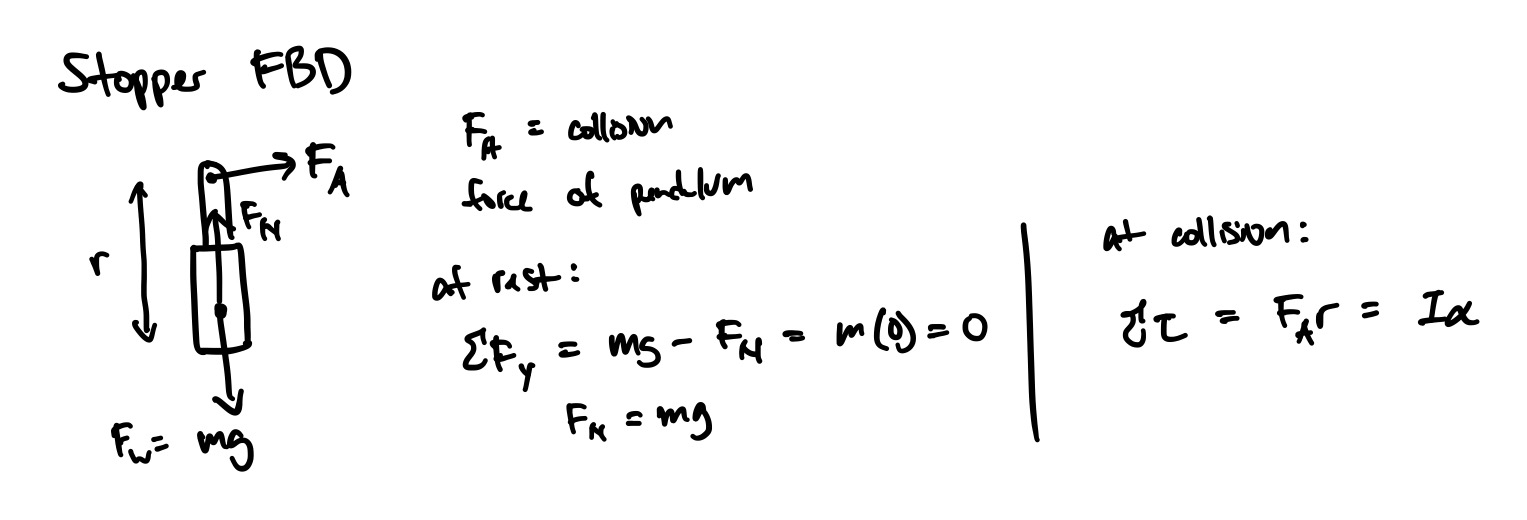 Stopper FBD
F_A
F_N
r
F_w = mg
F_A = collision
force of pendulum
at rest:
ΣF_y = mg - F_N = m(0) = 0
F_N = mg
at collision:
Στ = F_A r = Iα